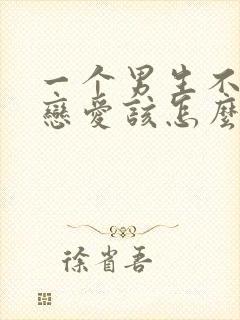 一个男生不
戀愛該怎麼
徐省吾